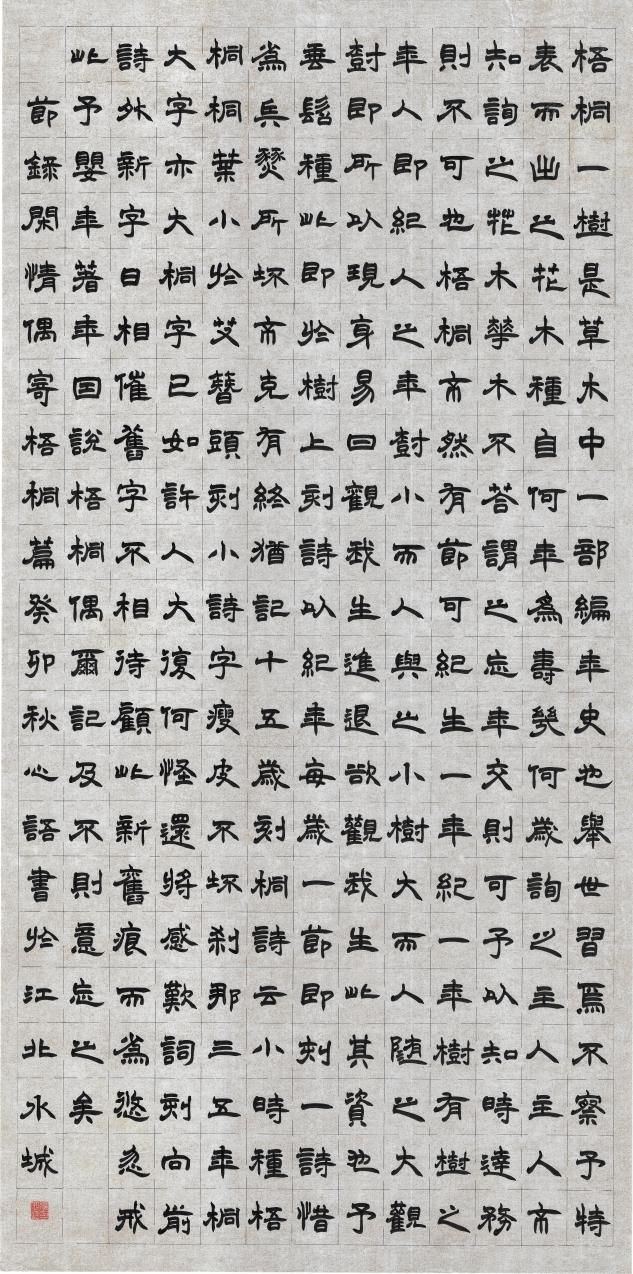 梧桐一樹是草木中一部編年史也舉世習焉不察予特
表而出之花木種自何年為壽幾何歲詢之主人主人不
知詢之花木華木不答謂之忘年交則可予以知時達務
則不可也梧桐不然有節可紀生一年紀一年樹有樹之
年人即紀人之年樹小而人與之小樹大而人隨之大觀
樹即所以現身易曰觀我生進退欲觀我生此其資也予
垂髫種此即於樹上刻詩以紀年每歲一節即刻一詩惜
為兵燹所壞不克有終猶記十五歲刻桐詩云小時種梧
桐桐葉小於艾簪頭刻小詩字瘦皮不壞剎那三五年桐
大字亦大桐字已如許人大復何怪還將感歎詞刻向前
詩外新字日相催舊字不相待顧此新舊痕而為悠忽戒
此予嬰年著年因說梧桐偶爾記及不則意忘之矣
節錄閑情偶寄梧桐篇癸卯秋心語書於江北水城